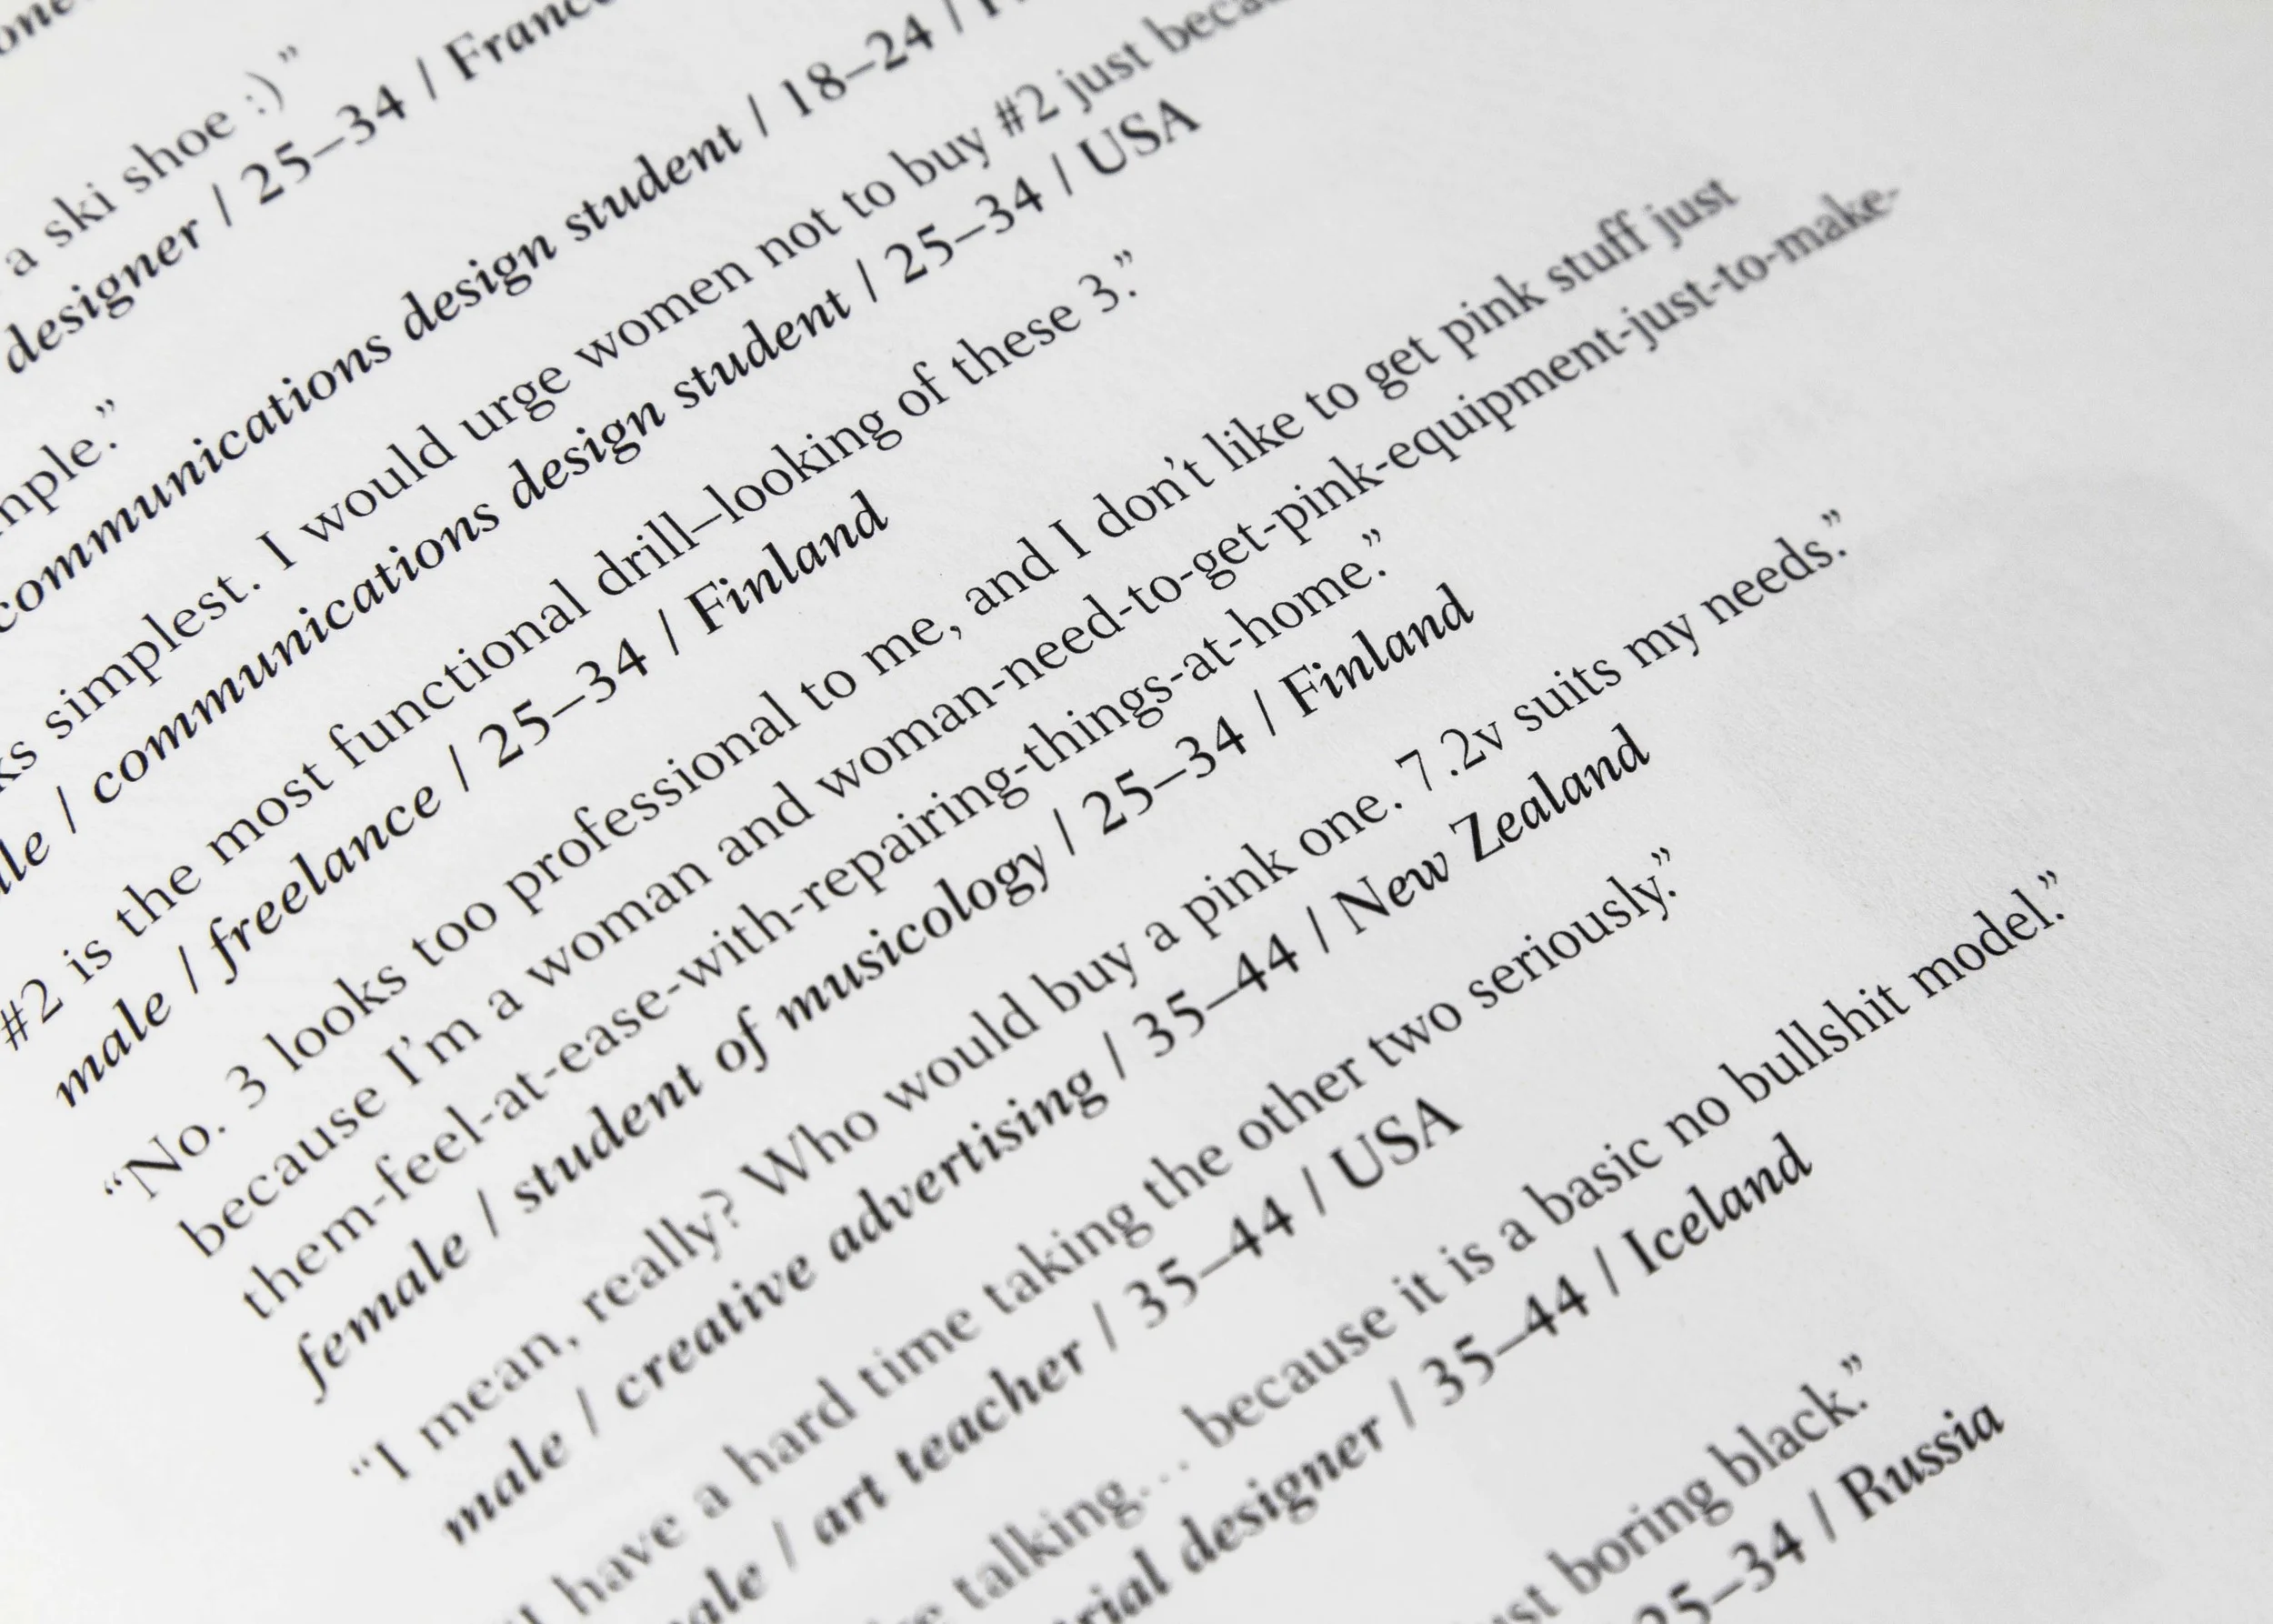 a ski shoe :)”
designer / 25–34 / France
communications design student / 18–24 /
simplest. I would urge women not to buy #2 just
/ communications design student / 25–34 / USA
#2 is the most functional drill–looking of these 3.”
male / freelance / 25–34 / Finland
“No. 3 looks too professional to me, and I don’t like to get pink stuff just
because I’m a woman and woman-need-to-get-pink-equipment-just-to-make-
them-feel-at-ease-with-repairing-things-at-home.”
female / student of musicology / 25–34 / Finland
“I mean, really? Who would buy a pink one. 7.2v suits my needs.”
male / creative advertising / 35–44 / New Zealand
have a hard time taking the other two seriously.”
/ art teacher / 35–44 / USA
talking… because it is a basic no bullshit model.”
designer / 35–44 / Iceland
boring black.”
25–34 / Russia